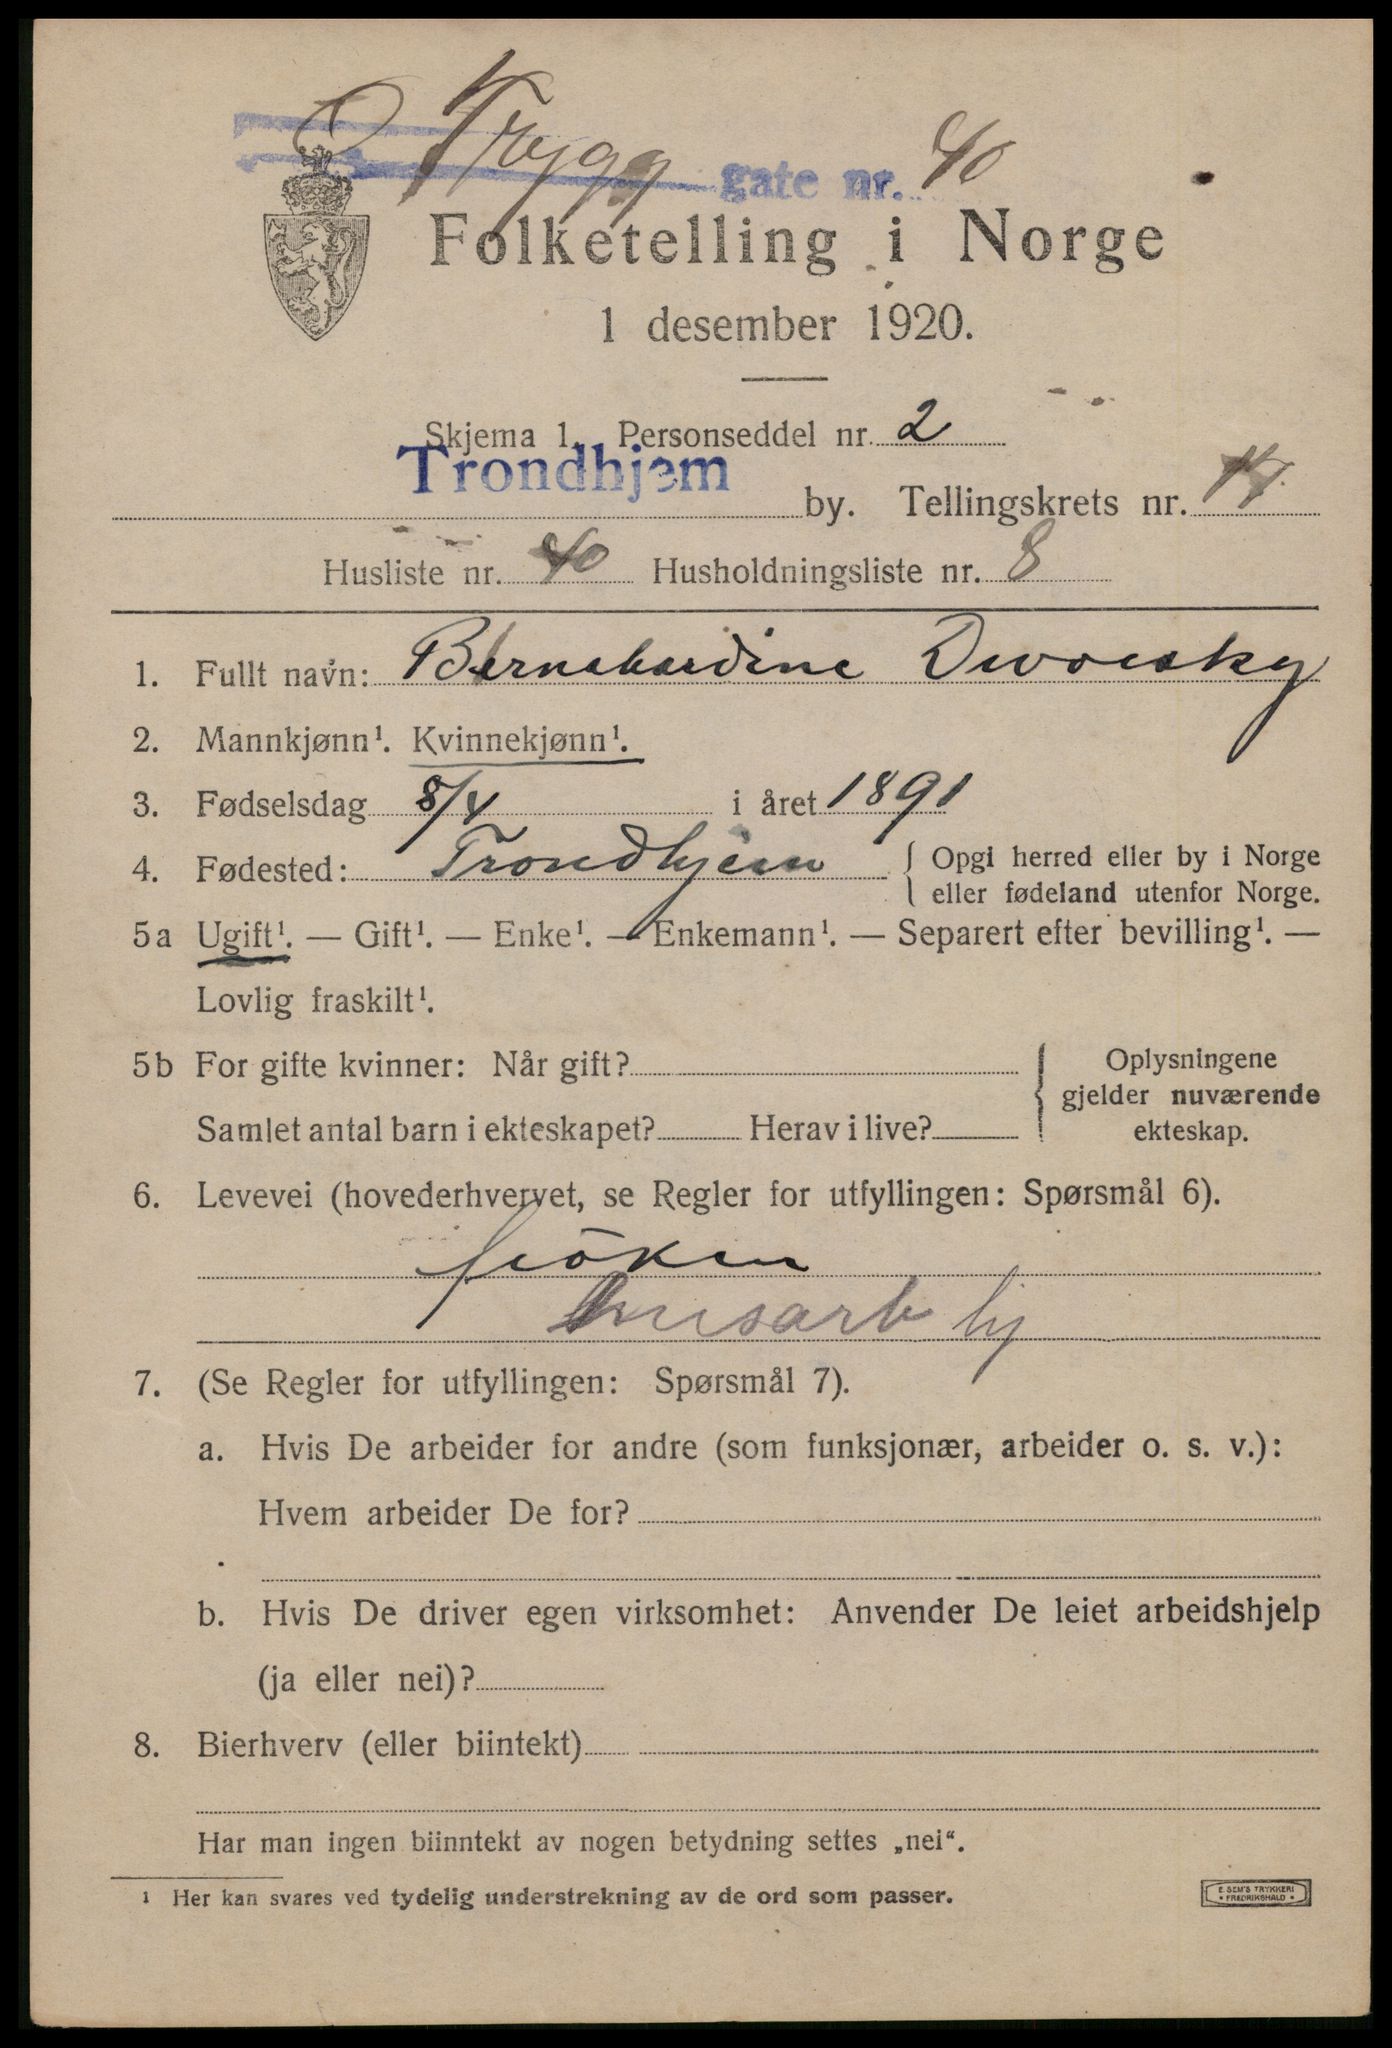 Ø Brygg gate nr. 40
Folketelling i Norge
1 desember 1920.
Skjema 1. Personseddel nr. 2
Trondhjem by. Tellingskrets nr. 14
Husliste nr. 40 Husholdningsliste nr. 8
1. Fullt navn: Dworsky
2. Mannkjønn¹. Kvinnekjønn¹.
3. Fødselsdag 8/4 i året 1891
4. Fødested: Trondhjem { Opgi herred eller by i Norge
eller fødeland utenfor Norge.
5a Ugift¹. — Gift¹. — Enke¹. — Enkemann¹. — Separert efter bevilling¹. —
Lovlig fraskilt¹.
5b For gifte kvinner: Når gift? { Oplysningene
gjelder nuværende
Samlet antal barn i ekteskapet? Herav i live? ekteskap.
6. Levevei (hovederhvervet, se Regler for utfyllingen: Spørsmål 6).
fröken
husarb hj
7. (Se Regler for utfyllingen: Spørsmål 7).
a. Hvis De arbeider for andre (som funksjonær, arbeider o. s. v.):
Hvem arbeider De for?
b. Hvis De driver egen virksomhet: Anvender De leiet arbeidshjelp
(ja eller nei)?
8. Bierhverv (eller biintekt)
Har man ingen biinntekt av nogen betydning settes „nei“.
¹ Her kan svares ved tydelig understrekning av de ord som passer.
E. SEM'S TRYKKERI
• FREDRIKSHALD •